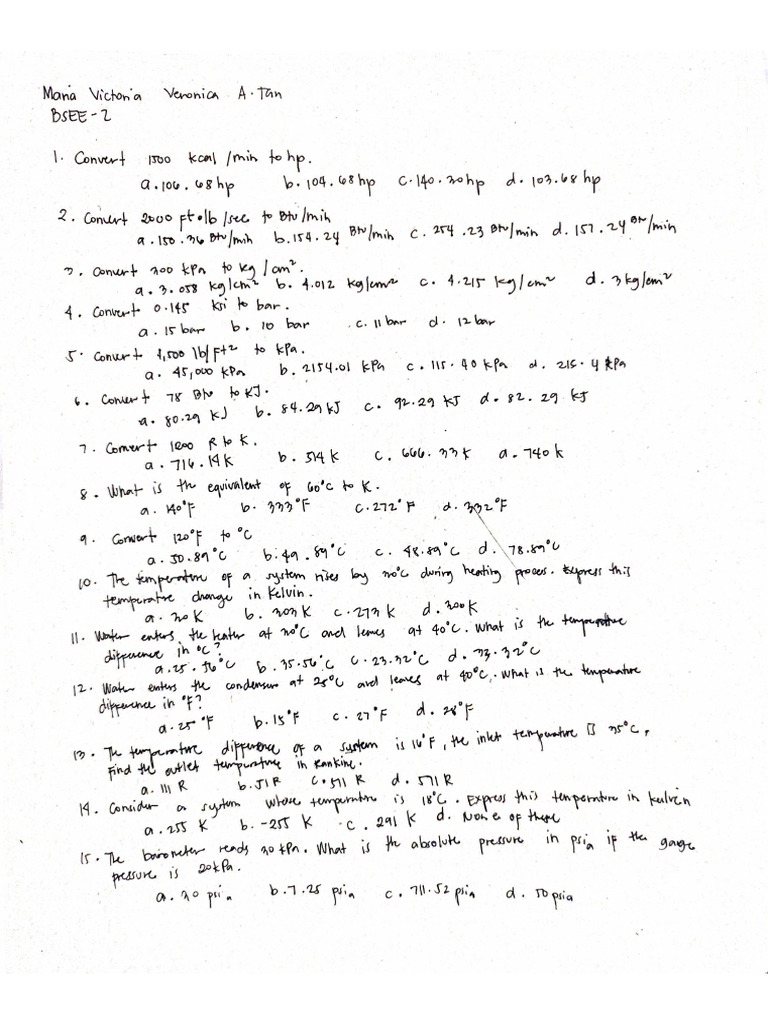 Maria Victoria Veronica A. Tan
BSEE-2
1. Convert 1500 kcal/min to hp.
a. 106.68hp b. 104.68hp c. 140.30hp d. 103.68 hp
2. Convert 2000 ft•lb/sec to Btu/min
a. 150.36 Btu/min b. 154.24 Btu/min c. 254.23 Btu/min d. 157.24 Btu/min
3. Convert 300 kPa to kg/cm².
a. 3.058 kg/cm² b. 4.012 kg/cm² c. 4.215 kg/cm² d. 3kg/cm²
4. Convert 0.145 ksi to bar.
a. 15 bar b. 10 bar c. 11 bar d. 12 bar
5. Convert 4,500 lb/ft² to kPa.
a. 45,000 kPa b. 2154.01 kPa c. 115.40 kPa d. 215.4 kPa
6. Convert 78 Btu to KJ.
a. 80.29 KJ b. 84.29 KJ c. 92.29 KJ d. 82.29 KJ
7. Convert 1200 R to K.
a. 716.14K b. 514 K c. 666.33K d. 740 k
8. What is the equivalent of 60°C to K.
a. 140°F b. 333°F c. 272°F d. 332°F
9. Convert 120°F to °C
a. 50.89°C b. 49.89°C c. 48.89°C d. 78.89°C
10. The temperature of a system rises by 30°C during heating process. Express this
temperature change in Kelvin.
a. 30K b. 303 K c. 273 K d. 300K
11. Water enters the heater at 30°C and leaves at 40°C. What is the temperature
difference in °C?
a. 25.56°C b. 35.56°C c. 23.32°C d. 33.32°C
12. Water enters the condenser at 25°C and leaves at 40°C. What is the temperature
difference in °F?
a. 25°F b. 15°F c. 27°F d. 28°F
13. The temperature difference of a system is 16°F, the inlet temperature is 35°C,
Find the outlet temperature in Rankine.
a. 111 R b. 51R c. 511 R d. 571 R
14. Consider a system whose temperature is 18°C. Express this temperature in kelvin
a. 255 K b. -255 K c. 291 K d. None of these
15. The barometer reads 30 kPa. What is the absolute pressure in psia if the gauge
pressure is 20kPa.
a. 30 psia b. 7.25 psia c. 711.52 psia d. 50 psia